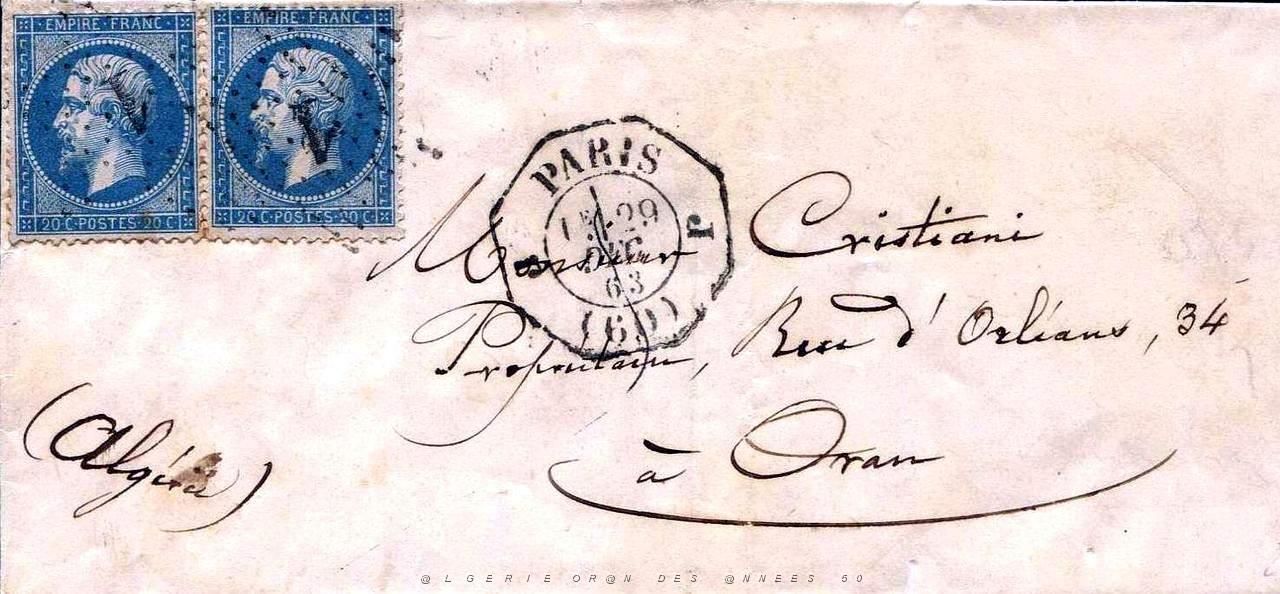 EMPIRE FRANC
20 C·POSTES·20 C
EMPIRE FRANC
20 C·POSTES·20 C
1
1
PARIS
29
DEC
63
(60)
Monsieur Cristiani
Propriétaire, Rue d'Orléans, 34
à Oran
(Algérie)
@LGERIE OR@N DES @NNEES 50